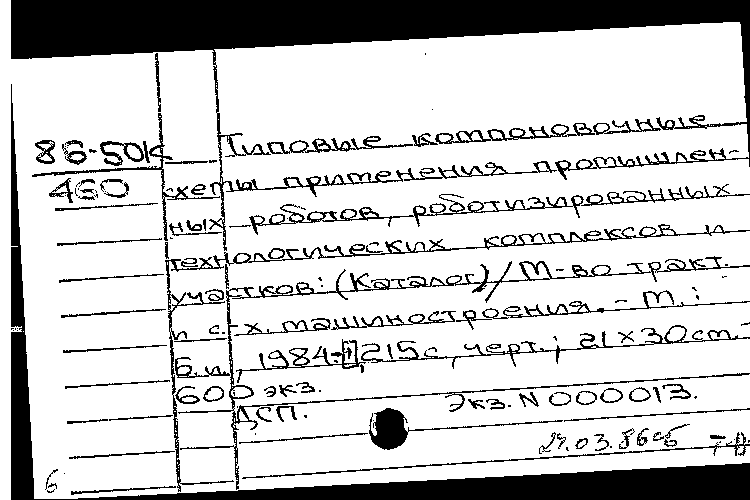 86-50К
460
Типовые компоновочные
схемы применения промышлен-
ных роботов, роботизированных
технологических комплексов и
участков: (Каталог) / М-во тракт.
и с.-х. машиностроения. - М.:
б.и., 1984. - 215с., черт.; 21×30см. -
600 экз.
ДСП. Экз. N 000013.
6